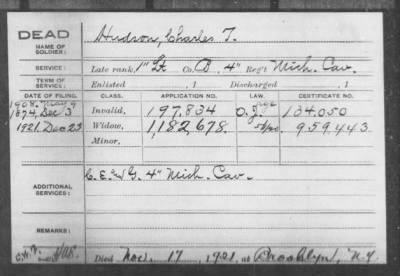 DEAD
NAME OF SOLDIER: Hudson, Charles T.
SERVICE: Late rank, 1" Lt Co. B, 4" Reg't Mich. Cav.
TERM OF SERVICE: Enlisted , 1 Discharged , 1
DATE OF FILING. CLASS. APPLICATION NO. LAW. CERTIFICATE NO.
1908. May 9
1874, Dec 3 Invalid, 197.834 O.J. Age 134.050
1921. Dec 23 Widow, 1,182,678. 959,443
Minor,
ADDITIONAL SERVICES: C. E. & G. 4" Mich. Cav.
REMARKS:
Died Nov. 17, 1921, at Brooklyn, N.Y.